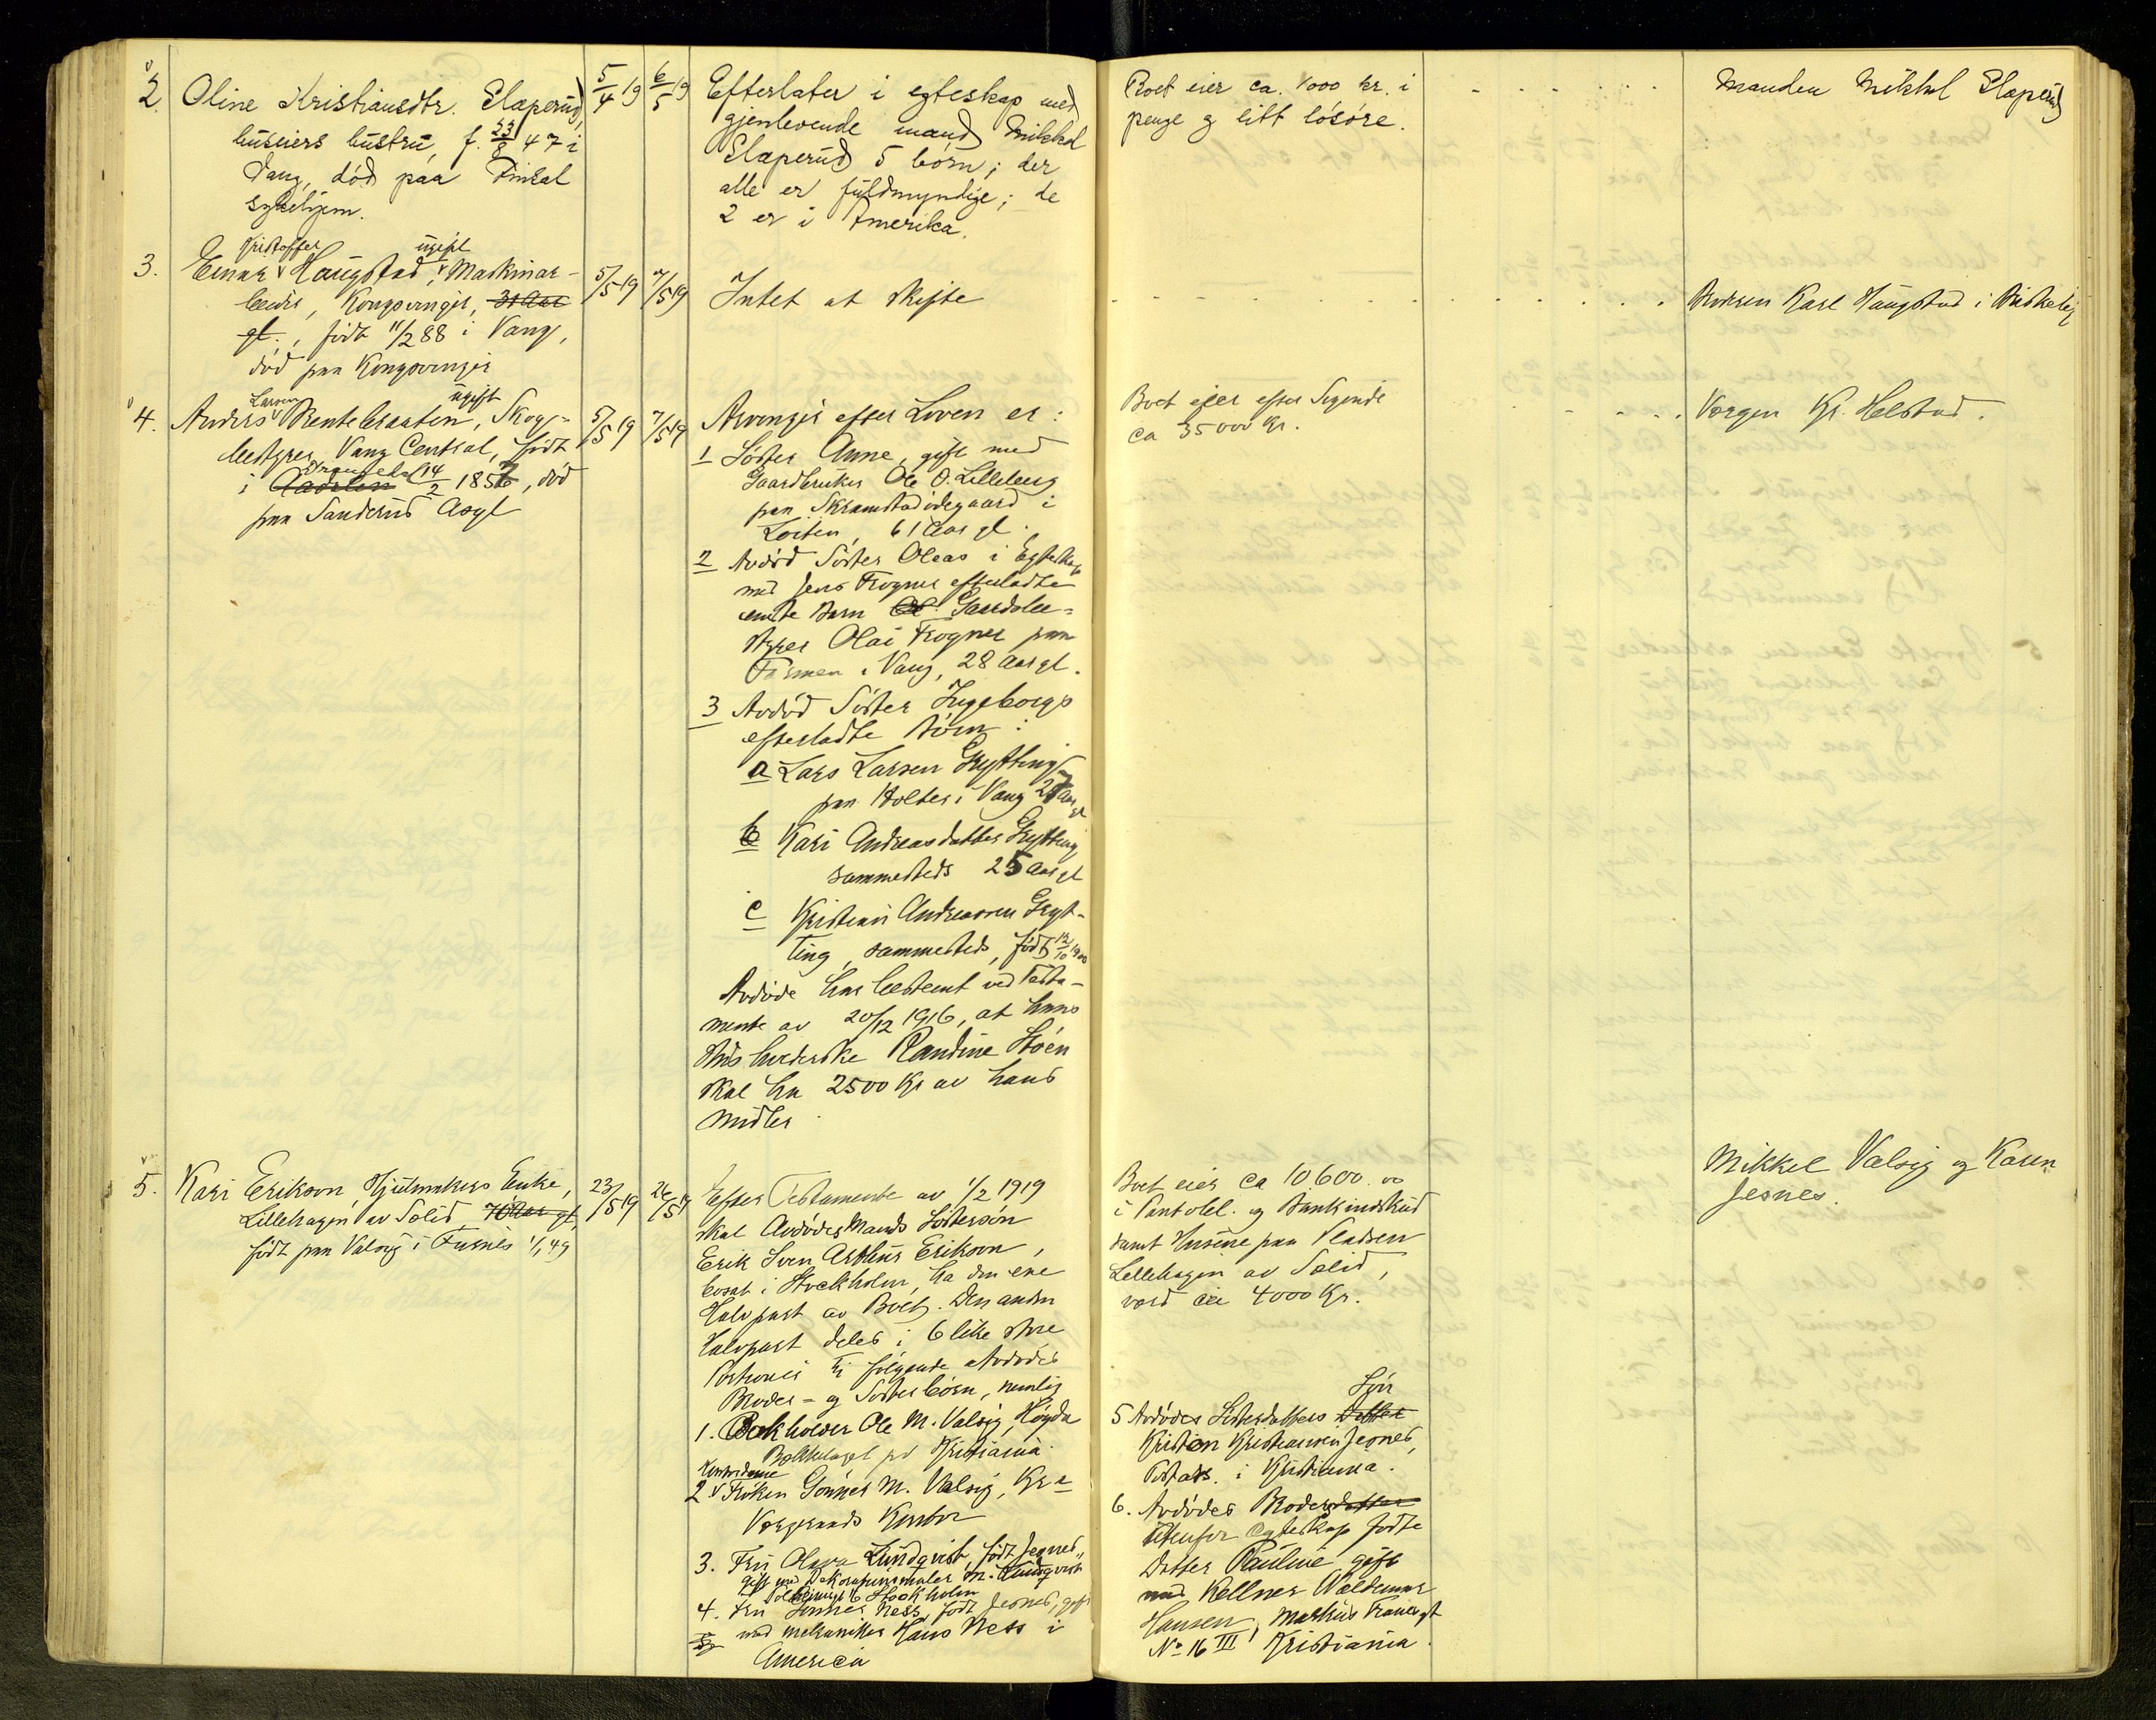 2. Oline Kristiansdtr. Slaperud,
huseiers hustru, f. 23/8 47 i
Vang, død paa Finsal
sykehjem.
5/4 19
6/5 19
Efterlater i egteskap med
gjenlevende mand Mikkel
Slaperud 5 børn; der
alle er fuldmyndige; de
2 er i Amerika.
Boet eier ca. 1000 kr. i
penge og litt løsøre.
Manden Mikkel Slaperud
Kristoffer ugift
3. Einar Haugstad, Maskinar-
beider, Kongsvinger, 31 Aar
gl., født 11/2 88 i Vang,
død paa Kongsvinger
5/5 19
7/5 19
Intet at skifte
Broren Karl Haugstad i
Larsen ugift
4. Anders Rentebraaten, Skog-
bestyrer, Vang Central, født
i Aadalen 14/2 1857, død
paa Sanderud Asyl
5/5 19
7/5 19
Arvinger efter Loven er:
1 Søster Anne, gift med
Gaardbruker Ole O. Lilleberg
paa Skramstadødegaard i
Løiten, 61 Aar gl.
2 Avdød Søster Oleas i Egteskap
med Jens Frogner efterladte
eneste Barn Gaardsbe-
styrer Olai Frogner paa
Farmen i Vang, 28 Aar gl.
3 Avdød Søster Ingeborgs
efterladte Børn:
a Lars Larsen Grytting
paa Holter i Vang 27 Aar gl
b Kari Andreasdatter Grytting
sammesteds 25 Aar gl
c Kristian Andreassen Gryt-
ting, sammesteds, født 12/10 1900
Avdøde har bestemt ved Testa-
mente av 20/12 1916, at hans
Husholderske Randine Støen
skal ha 2500 Kr av hans
Midler
Boet eier efter Sigende
ca 35000 Kr.
Vergen Kr. Helstad.
5. Kari Erikson, Hjulmakers Enke,
Lillehagen av Solid 70 Aar gl,
født paa Valsig i Furnes 1/1 49
23/5 19
26/5 19
Efter Testamente av 1/2 1919
skal Avdødes Mands Søstersøn
Erik Sven Arthur Erikson,
bosat i Stockholm, ha den ene
Halvpart av Boet. Den anden
Halvpart deles i 6 like store
Portioner til følgende Avdødes
Broder- og Søsterbørn, nemlig
1. Bokholder Ole M. Valsig, Høyda
pr Kristiania.
Kontordame
2 Frøken Gønner M. Valsig, Kr a
Vergeraads Kontor
3. Fru Olava Lundqvist, født Jesnes,
gift med Dekorationsmaler M. Lundqvist
16 Stockholm
4. Fru Gønner Ness, født Jesnes, gift
med mekaniker Hans Ness i
America
Boet eier ca 10600.00
i Pantobl. og Bankindskud
samt Husene paa Pladsen
Lillehagen av Solid,
verd ca 4000 Kr.
Søn
5 Avdødes Søsterdatters Datter
Kristian Kristiansen Jesnes,
Postass. i Kristiania.
6. Avdødes Brodersdatter
Utenfor Egteskap fødte
Datter Pauline gift
med Kellner Waldemar
Hansen, Markus Tranes gt
No 16 III Kristiania.
Mikkel Valsig og Karen
Jesnes.